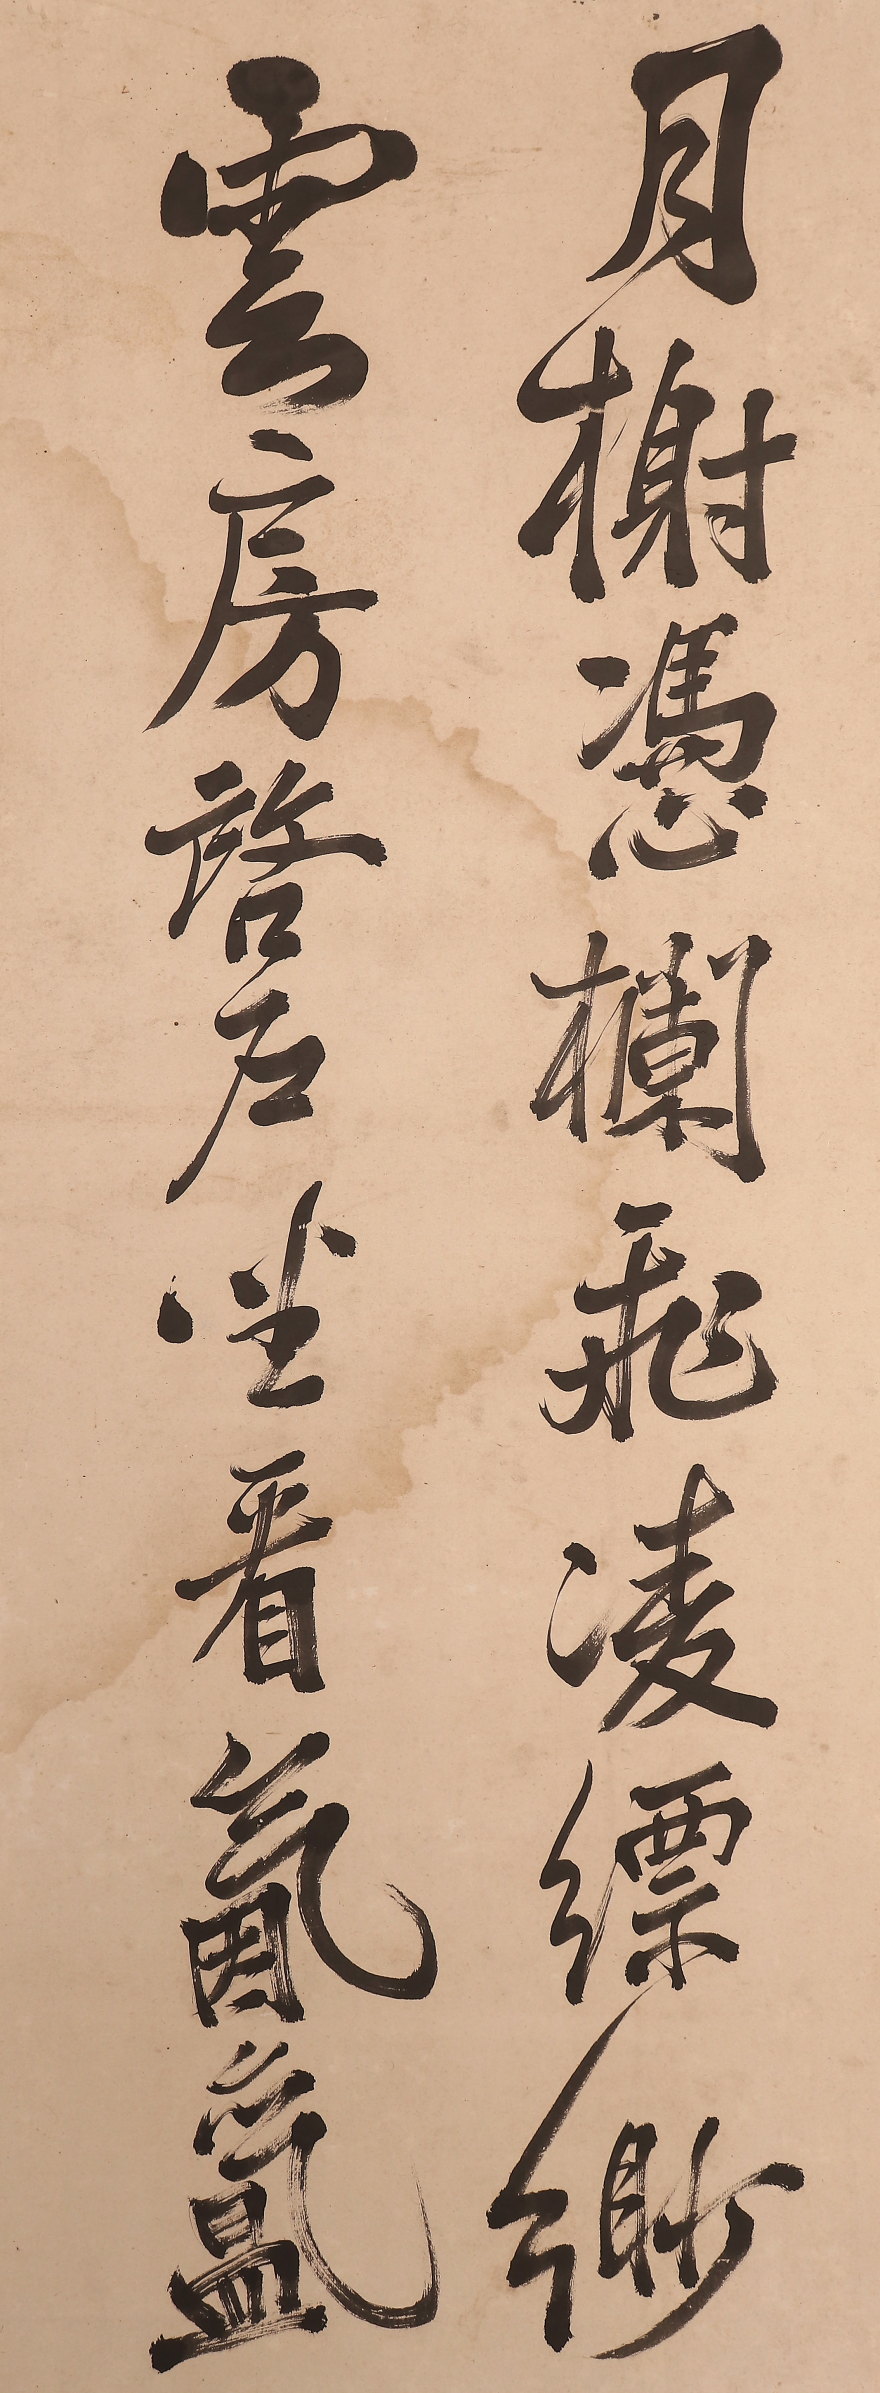 月榭憑欄飛凌縹緲
雲房啓戶坐看氤氳